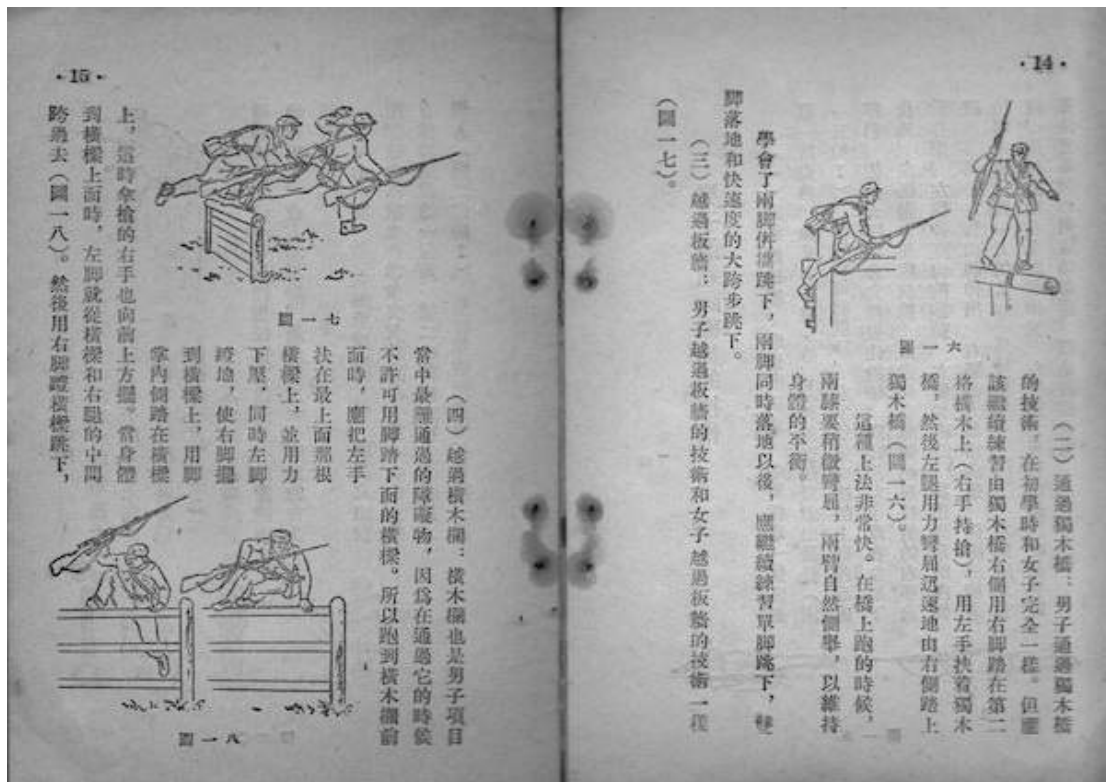 ·14·
(二)通過獨木橋:男子通過獨木橋
的技術,在初學時和女子完全一樣。但應
該繼續練習由獨木橋右側用右脚踏在第二
格橫木上(右手持搶),用左手扶着獨木
橋,然後左腿用力彎屈迅速地由右側踏上
獨木橋(圖一六)。
這種上法非常快。在橋上跑的時候,
兩腿要稍微彎屈,兩臂自然側舉,以維持
身體的平衡。
圖一六
學會了兩脚併攏跳下,兩脚同時落地以後,應繼續練習單脚跳下,雙
脚落地和快速度的大跨步跳下。
(三)越過板牆:男子越過板牆的技術和女子越過板牆的技術一樣
(圖一七)。
·15·
圖一七
(四)越過橫木欄:橫木欄也是男子項目
當中最難通過的障礙物,因爲在通過它的時候
不許可用脚踏下面的橫樑。所以跑到橫木欄前
面時,應把左手
扶在最上面那根
橫樑上,並用力
下壓,同時左脚
蹬地,使右脚擺
到橫樑上,用脚
掌內側踏在橫樑
上,這時拿槍的右手也向前上方擺。當身體
到橫樑上面時,左脚就從橫樑和右腿的中間
跨過去(圖一八)。然後用右脚蹬橫樑跳下,
圖一八